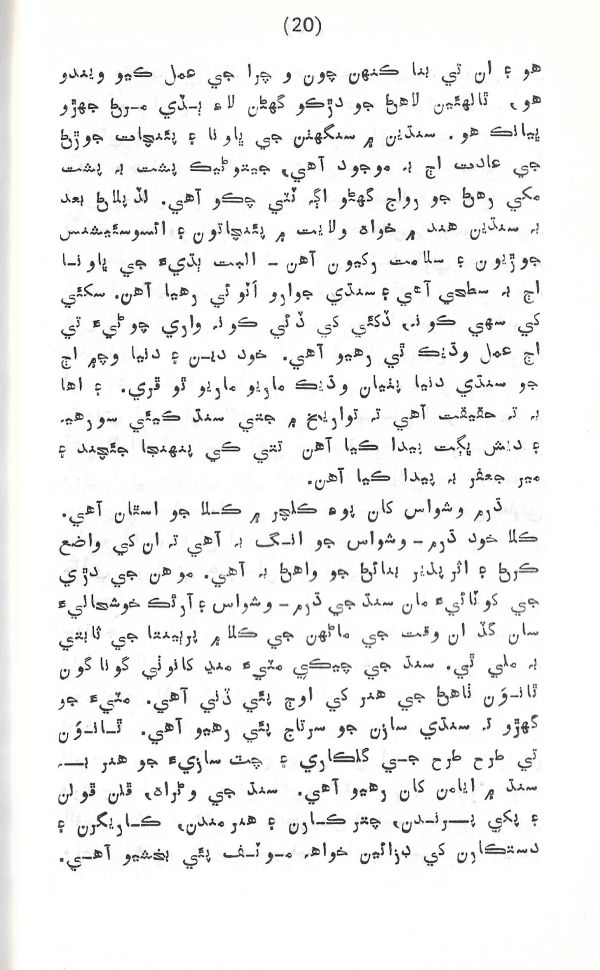 (20)
هو ۽ ان تي بنا ڪنهن چون و چرا جي عمل ڪيو ويندو
هو، ٿالهڻين لاهڻ جو دڙڪو گهڻن لاءِ ٻـڏي مـرڻ جهڙو
ڀيانڪ هو. سنڌين ۾ سنگهٺن جي ڀاونا ۽ پئنچات جوڙڻ
جي عادت اڄ بہ موجود آهي، جيتوڻيڪ پشت بہ پشت
مکي رهڻ جو رواج گهڻو اڳہ ٽٽي چڪو آهي. لڏپلاڻ بعد
بہ سنڌين هند ۾ خواه ولايت ۾ پئنچاتون ۽ ائسوسئيشنس
جوڙيون ۽ سلامت رکيون آهن - البت ٻڌيءَ جي ڀاونـا
اڄ بہ سطحي آهي ۽ سنڌي جوارو اڻوئي رهيا آهن. سکئي
کي سهي ڪونہ، ڏکئي کي ڏئي ڪونہ واري چوڻيءَ تي
اڄ عمل وڌيڪ ٿي رهيو آهي. خود ديـن ۽ دنيا وچ۾ اڄ
جو سنڌي دنيا پٺيان وڌيڪ ماريو ماريو ٿو ڦري. ۽ اها
بہ تہ حقيقت آهي تہ تواريخ ۾ جتي سنڌ ڪيئي سورهيہ
۽ ديش ڀڳت پيدا ڪيا آهن تتي کي پنهنجا جئچند ۽
مير جعفر بہ پيدا ڪيا آهن.
ڌرم وشواس کان پوءِ ڪلچر ۾ ڪـلا جو استان آهي.
ڪلا خود ڌرم - وشواس جو انـگ بہ آهي تہ ان کي واضع
ڪرڻ ۽ اثرپذير بنائڻ جو واهڻ بہ آهي. موهن جي دڙي
جي کوٽائيءَ مان سنڌ جي ڌرم - وشواس ۽ آرٿڪ خوشحاليءَ
سان گڏ ان وقت جي ماڻهن جي ڪلا ۾ پرٻينتا جي ثابتي
بہ ملي ٿي. سنڌ جي چيڪي مٽيءَ منڍ کانوئي گوناگون
ٿانـوَن ٺاهڻ جي هنر کي اوج پئي ڏني آهي. مٽيءَ جو
گهڙو تہ سنڌي سازن جو سرتاج پئي رهيو آهي. ٿـانـوَن
تي طرح طرح جـي گلڪاري ۽ چٽ سازيءَ جو هنر بـہ
سنڌ ۾ ايامن کان رهيو آهي. سنڌ جي وڻراه، ڦلن ڦولن
۽ پکي پـرنـدن، چترڪـارن ۽ هنرمندن، ڪـاريگرن ۽
دستڪارن کي ڊزائين خواهہ مـوٽـف پئي بخشيو آهـي.